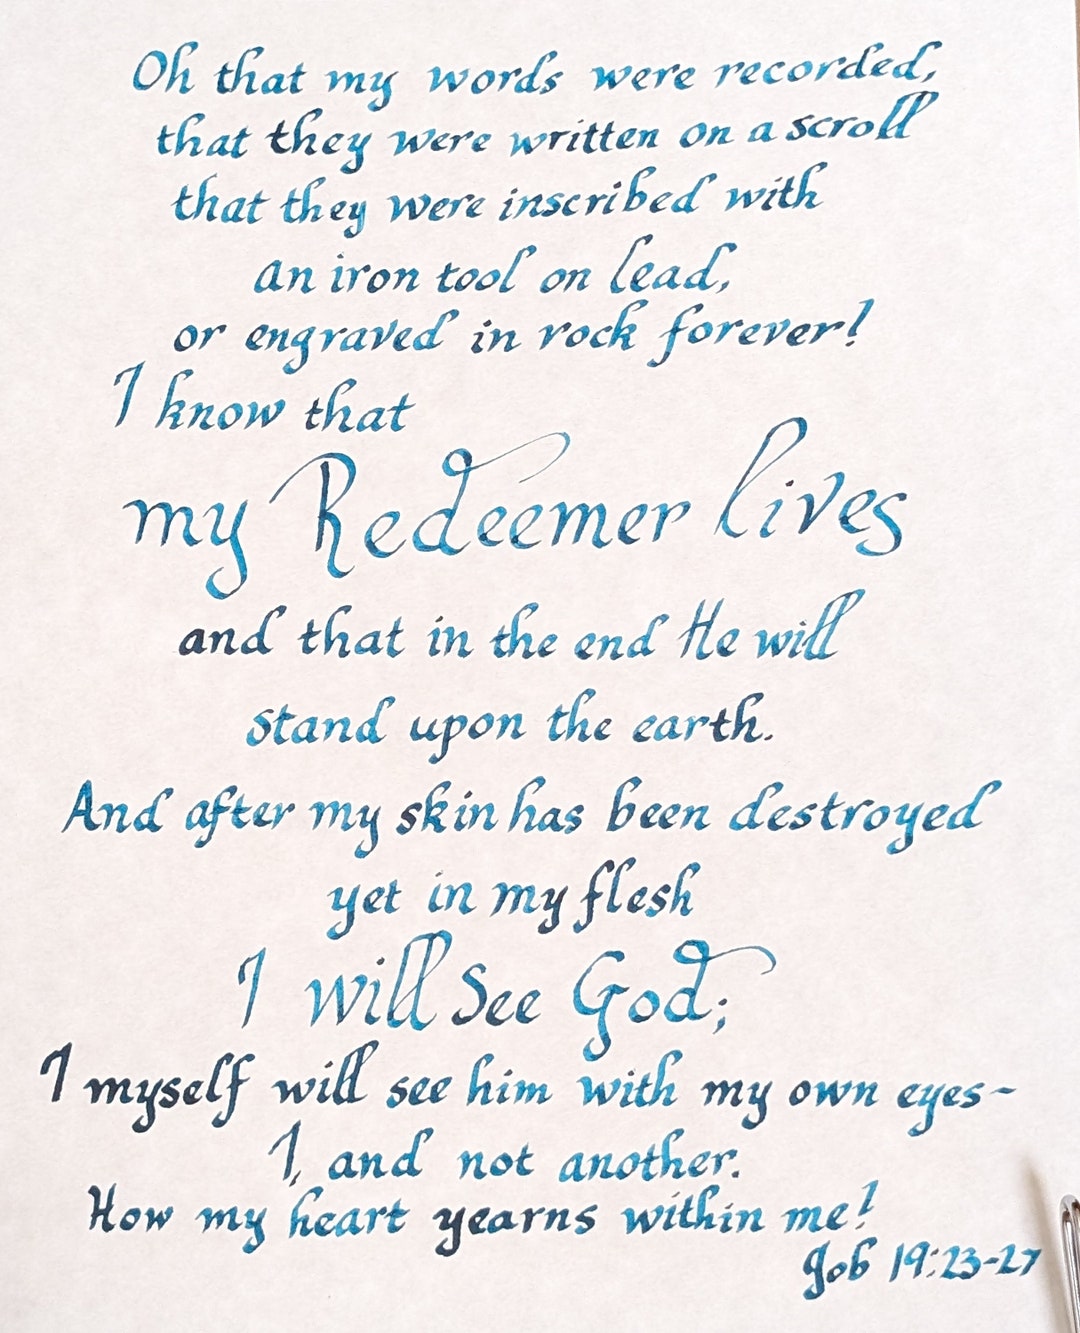 Oh that my words were recorded,
that they were written on a scroll
that they were inscribed with
an iron tool on lead,
or engraved in rock forever!
I know that
my Redeemer lives
and that in the end He will
stand upon the earth.
And after my skin has been destroyed
yet in my flesh
I will see God;
I myself will see him with my own eyes-
I, and not another.
How my heart yearns within me!
Job 19:23-27